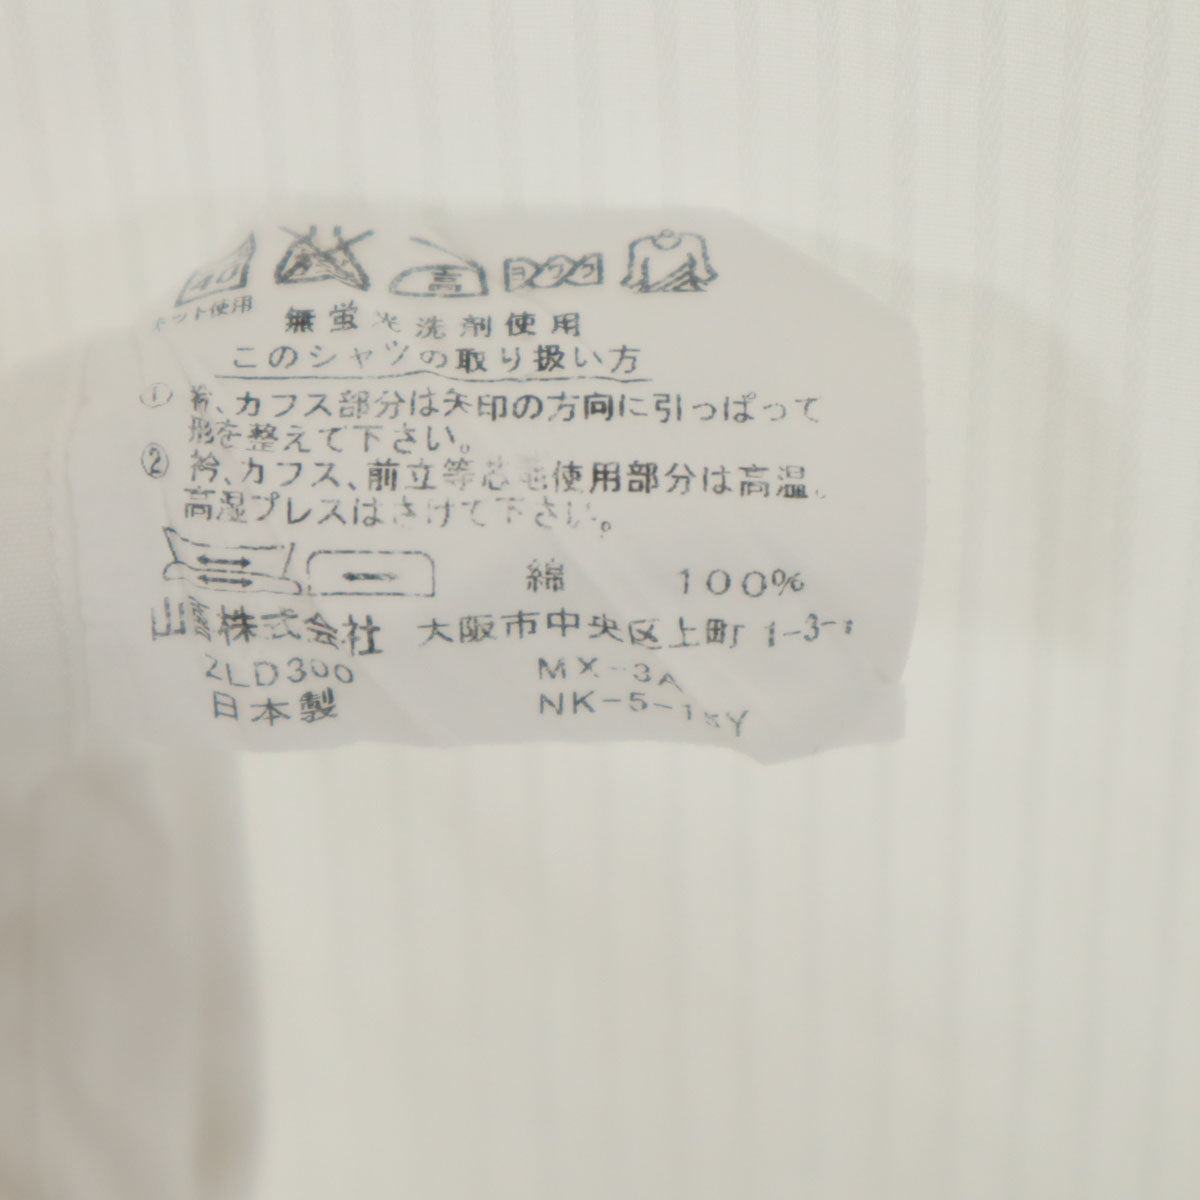 40 高 ヨワク
ネット使用
無蛍光洗剤使用
このシャツの取り扱い方
① 衿、カフス部分は矢印の方向に引っぱって
形を整えて下さい。
② 衿、カフス、前立等芯地使用部分は高温、
高湿プレスはさけて下さい。
綿 100%
株式会社 大阪市中央区上町1-3-1
2LD300 MX-3A
日本製 NK-5-1